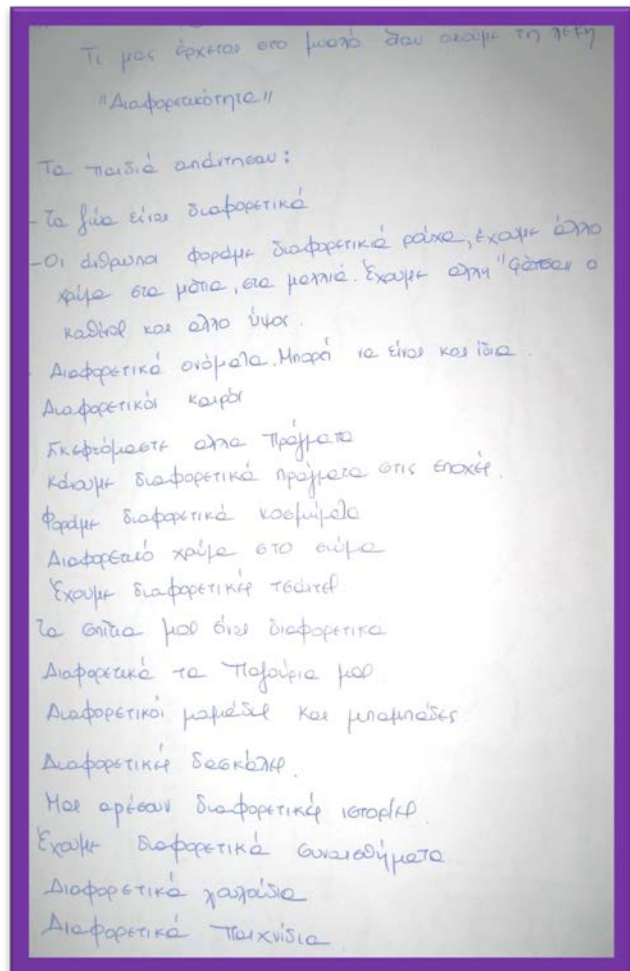 Τι μας έρχεται στο μυαλό όταν ακούμε τη λέξη
"Διαφορετικότητα"
Τα παιδιά απάντησαν:
- Τα ζώα είναι διαφορετικά
- Οι άνθρωποι φοράμε διαφορετικά ρούχα, έχουμε άλλο
χρώμα στα μάτια, στα μαλλιά. Έχουμε άλλη "φάτσα" ο
καθένας και άλλο ύψος.
- Διαφορετικά ονόματα. Μπορεί να είναι και ίδια.
Διαφορετικοί καιροί
Σκεφτόμαστε άλλα πράγματα
Κάνουμε διαφορετικά πράγματα στις εποχές.
Φοράμε διαφορετικά κοσμήματα
Διαφορετικό χρώμα στο σώμα
Έχουμε διαφορετικές τσάντες
Τα σπίτια μας είναι διαφορετικα
Διαφορετικά τα παγούρια μας
Διαφορετικοί μαμάδες και μπαμπάδες
Διαφορετικές δασκάλες.
Μας αρέσουν διαφορετικές ιστορίες.
Έχουμε διαφορετικά συναισθήματα
Διαφορετικά
Διαφορετικά παιχνίδια.